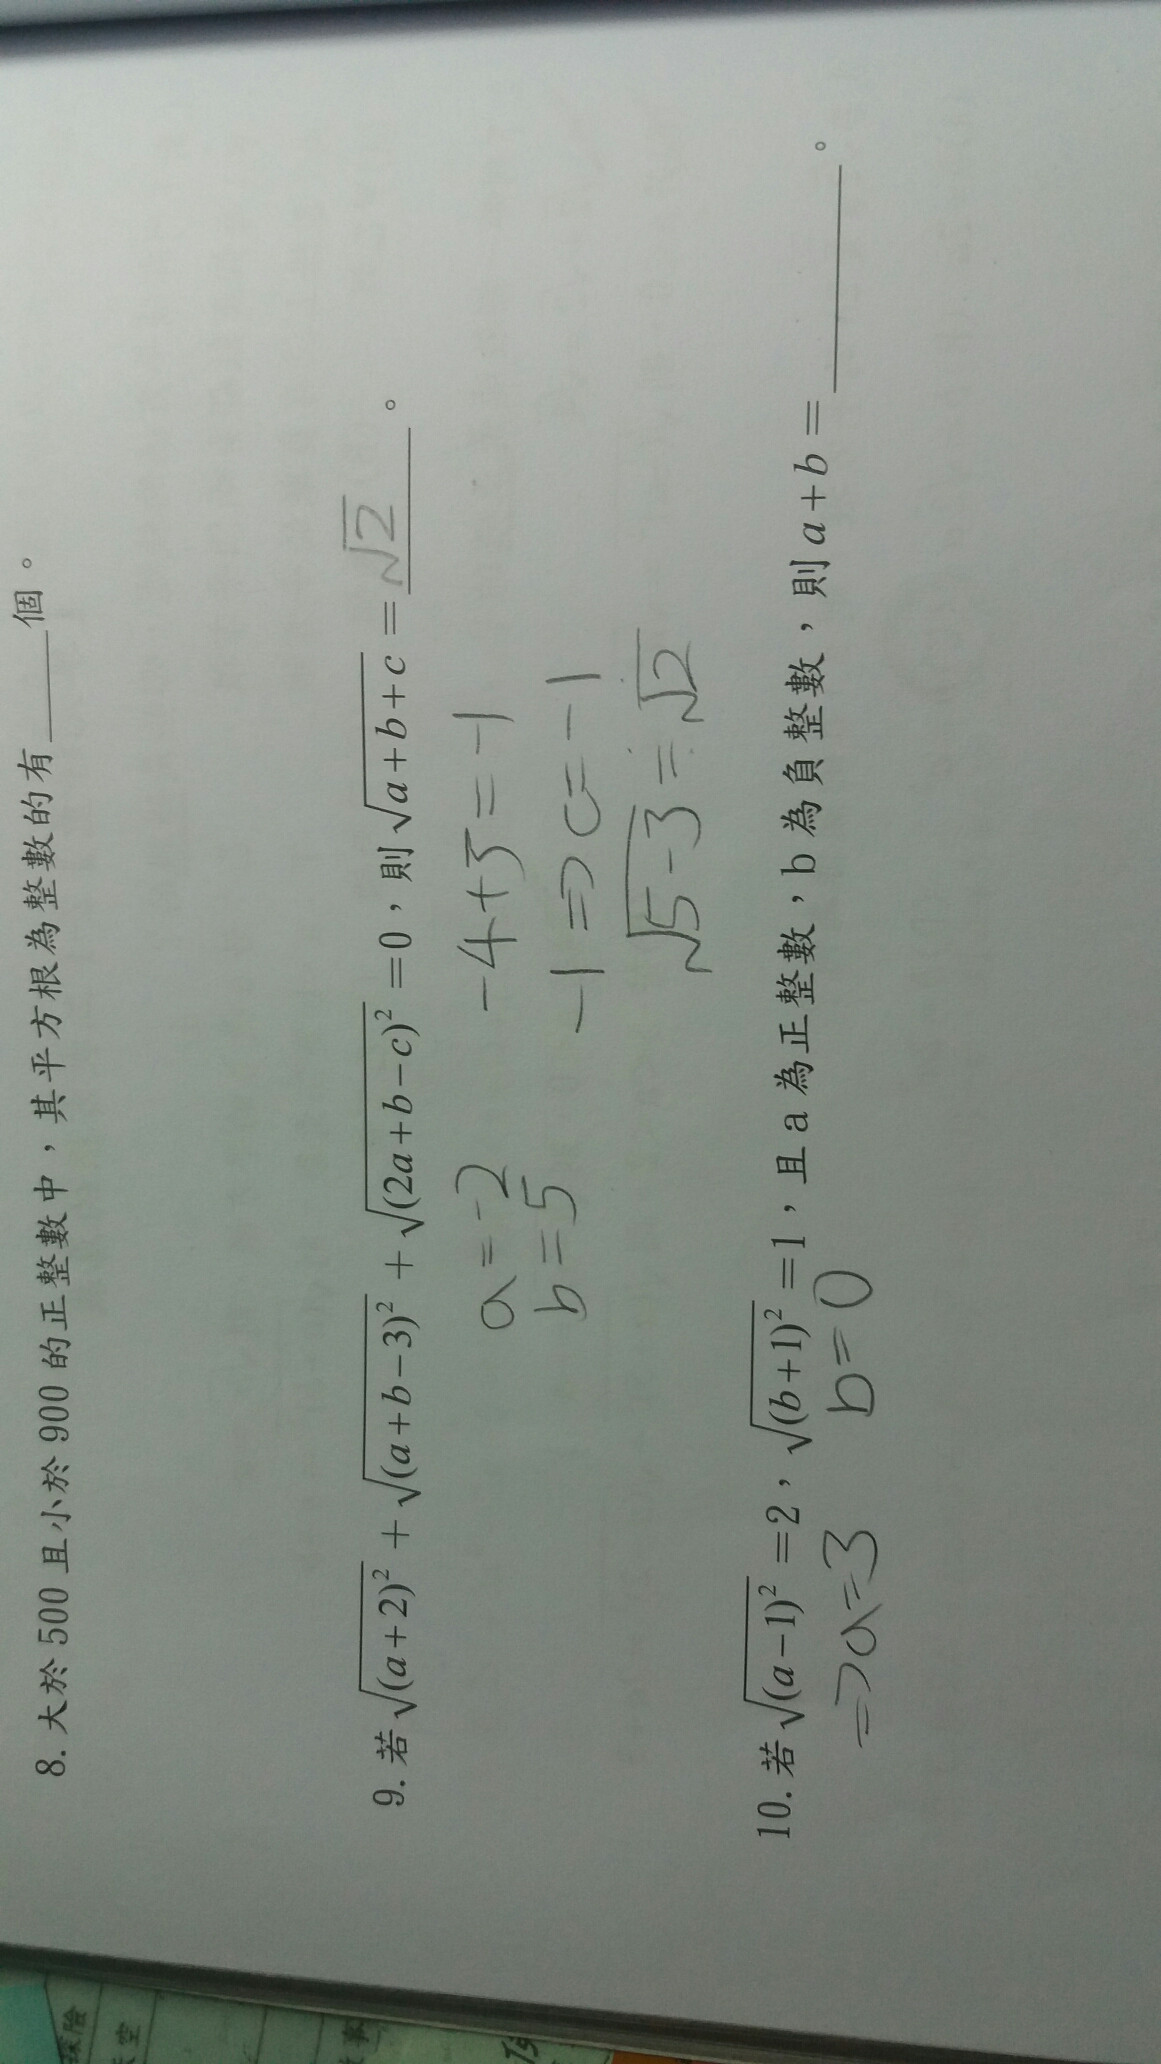 8. 大於 500 且小於 900 的正整數中，其平方根為整數的有______個。
9. 若 √(a+2)² + √(a+b−3)² + √(2a+b−c)² =0，則 √a+b+c = √2 。
a=-2
b=5
-4+3=-1
-1=>c=-1
√5-3=√2
10. 若 √(a−1)² =2，√(b+1)² =1，且 a 為正整數，b 為負整數，則 a+b = ________。
=>a=3
b=0
探險
空
事